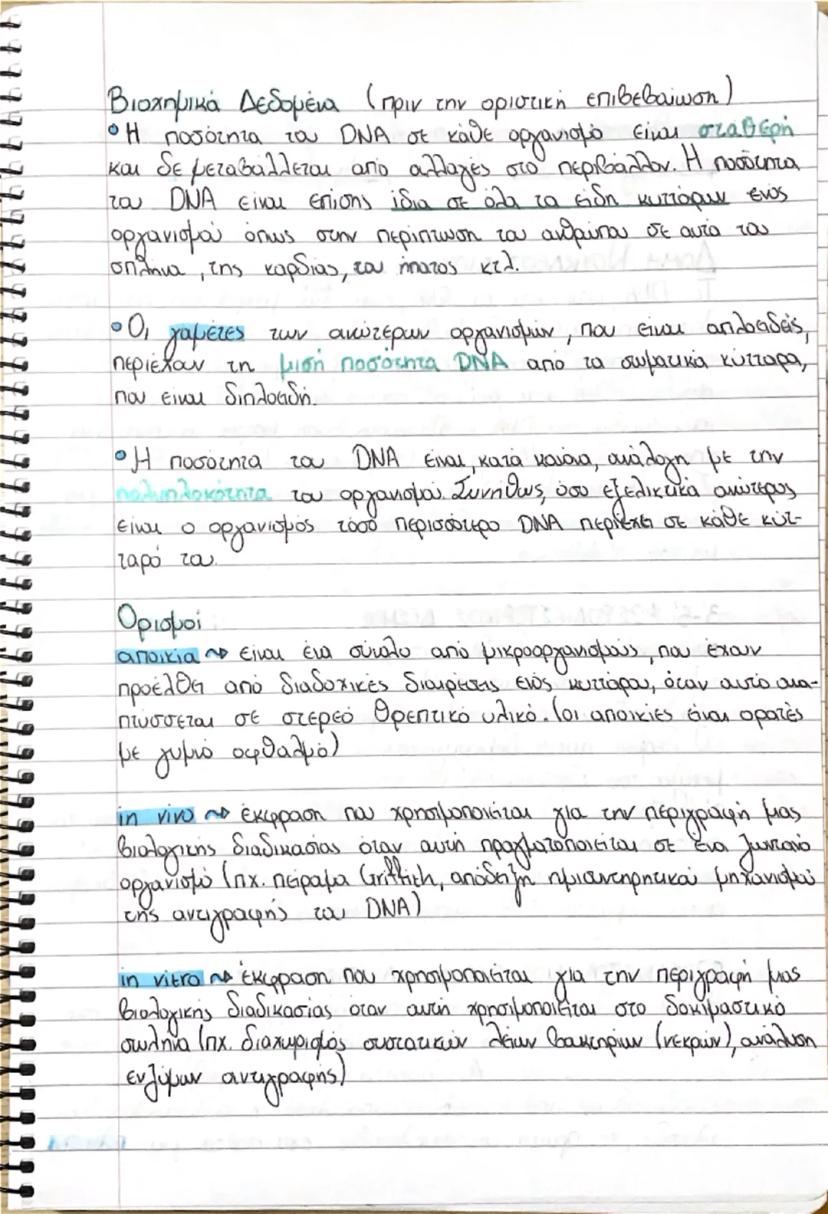 Βιοχημικά Δεδομένα (πριν την οριστική επιβεβαίωση)
• Η ποσότητα του DNA σε κάθε οργανισμό είναι σταθερή
και δε μεταβάλλεται από αλλαγές στο περιβάλλον. Η ποσότητα
του DNA είναι επίσης ίδια σε όλα τα είδη κυττάρων ενός
οργανισμού όπως στην περίπτωση του ανθρώπου σε αυτά του
σπλήνα, της καρδιάς, του ήπατος κτλ.
• Οι γαμέτες των ανώτερων οργανισμών, που είναι απλοειδείς,
περιέχουν τη μισή ποσότητα DNA από τα σωματικά κύτταρα,
που είναι διπλοειδή.
• Η ποσότητα του DNA είναι, κατά κανόνα, ανάλογη με την
πολυπλοκότητα του οργανισμού. Συνήθως, όσο εξελικτικά ανώτερος
είναι ο οργανισμός τόσο περισσότερο DNA περιέχει σε κάθε κύτ-
ταρό του.
Ορισμοί
αποικία ~> είναι ένα σύνολο από μικροοργανισμούς, που έχουν
προέλθει από διαδοχικές διαιρέσεις ενός κυττάρου, όταν αυτό ανα-
πτύσσεται σε στερεό θρεπτικό υλικό. (οι αποικίες είναι ορατές
με γυμνό οφθαλμό)
in vivo ~> έκφραση που χρησιμοποιείται για την περιγραφή μιας
βιολογικής διαδικασίας όταν αυτή πραγματοποιείται σε ένα ζωντανό
οργανισμό (πχ. πείραμα Griffith, απόδειξη ημισυντηρητικού μηχανισμού
της αντιγραφής του DNA)
in vitro ~> έκφραση που χρησιμοποιείται για την περιγραφή μιας
βιολογικής διαδικασίας όταν αυτή χρησιμοποιείται στο δοκιμαστικό
σωλήνα (πχ. διαχωρισμός συστατικών λείων βακτηρίων (νεκρών), ανάλυση
ενζύμων αντιγραφής)